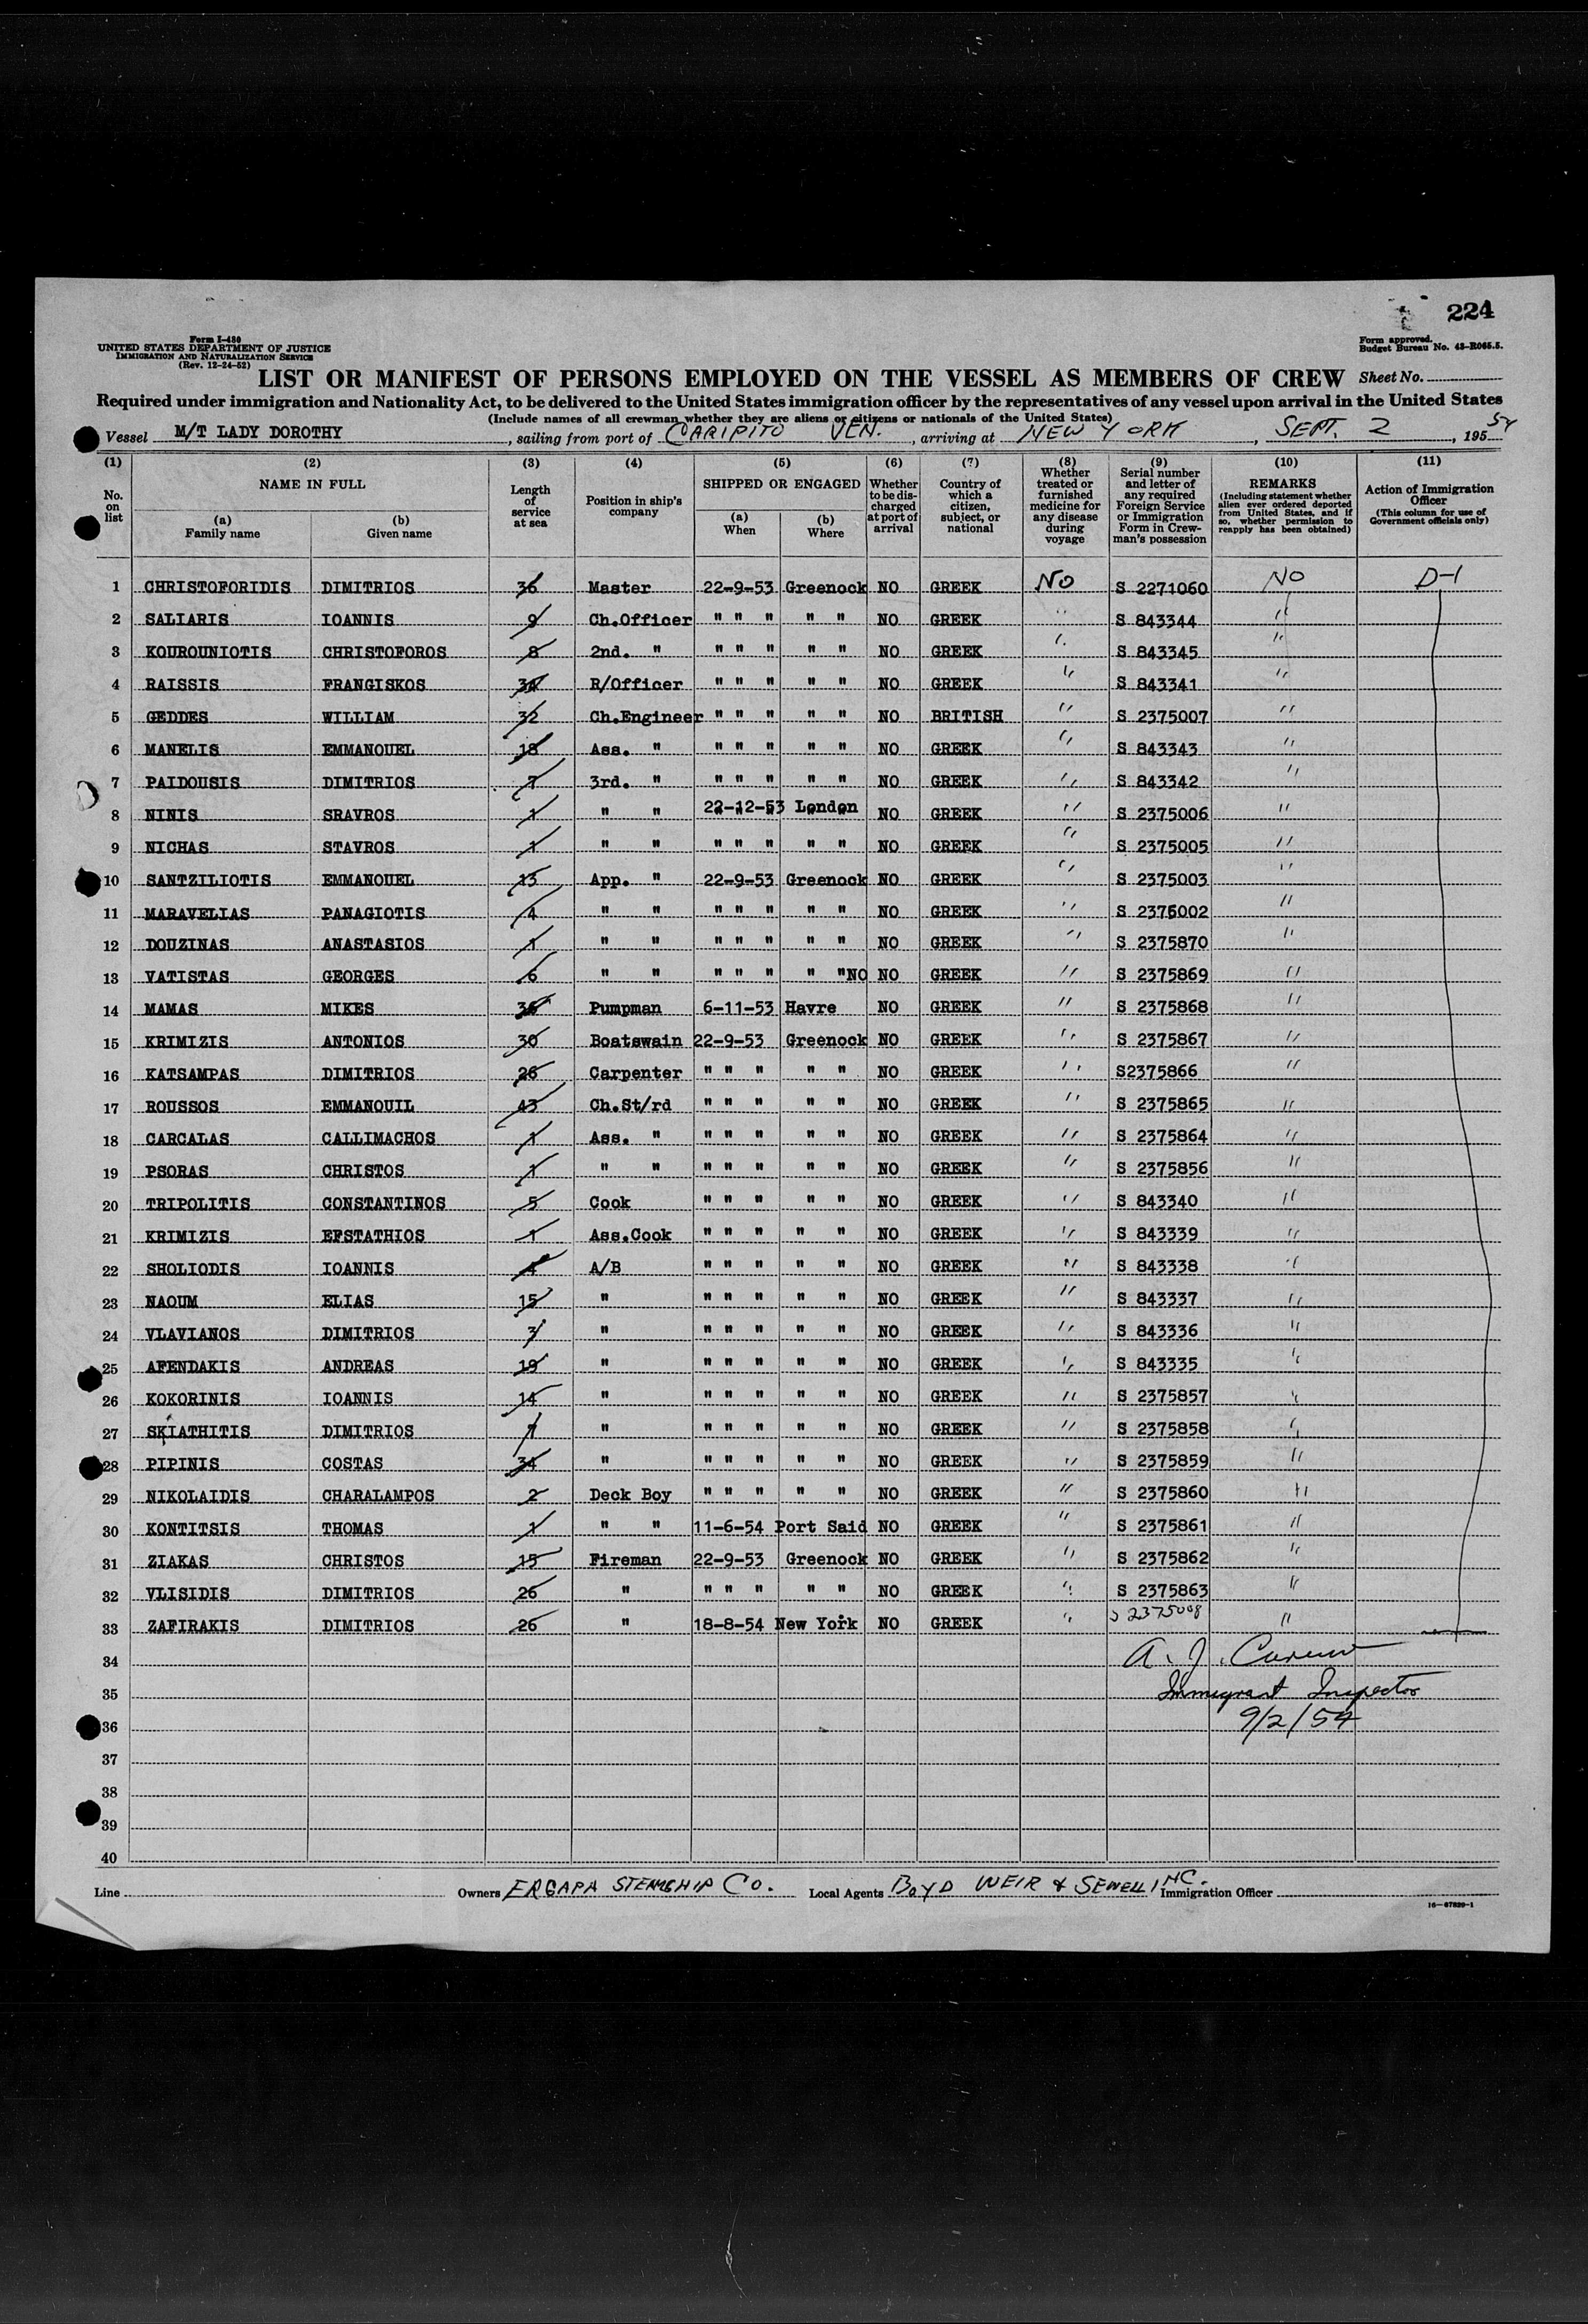 224
Form I-480
UNITED STATES DEPARTMENT OF JUSTICE
IMMIGRATION AND NATURALIZATION SERVICE
(Rev. 12-24-52)
Form approved.
Budget Bureau No. 43-R065.5.
LIST OR MANIFEST OF PERSONS EMPLOYED ON THE VESSEL AS MEMBERS OF CREW Sheet No.
Required under immigration and Nationality Act, to be delivered to the United States immigration officer by the representatives of any vessel upon arrival in the United States
(Include names of all crewman whether they are aliens or citizens or nationals of the United States)
Vessel M/T LADY DOROTHY, sailing from port of CARIPITO VEN., arriving at NEW YORK, SEPT. 2, 195 54
(1) (2) (3) (4) (5) (6) (7) (8) (9) (10) (11)
No. on list
NAME IN FULL
(a) Family name
(b) Given name
Length of service at sea
Position in ship's company
SHIPPED OR ENGAGED
(a) When
(b) Where
Whether to be discharged at port of arrival
Country of which a citizen, subject, or national
Whether treated or furnished medicine for any disease during voyage
Serial number and letter of any required Foreign Service or Immigration Form in Crewman's possession
REMARKS
(Including statement whether alien ever ordered deported from United States, and if so, whether permission to reapply has been obtained)
Action of Immigration Officer
(This column for use of Government officials only)
1 CHRISTOFORIDIS DIMITRIOS 36 Master 22-9-53 Greenock NO GREEK NO S 2271060 NO D-1
2 SALIARIS IOANNIS 9 Ch.Officer " " " " " NO GREEK " S 843344 "
3 KOUROUNIOTIS CHRISTOFOROS 8 2nd. " " " " " " NO GREEK " S 843345 "
4 RAISSIS FRANGISKOS 34 R/Officer " " " " " NO GREEK " S 843341 "
5 GEDDES WILLIAM 32 Ch.Engineer " " " " " NO BRITISH " S 2375007 "
6 MANELIS EMMANOUEL 18 Ass. " " " " " " NO GREEK " S 843343 "
7 PAIDOUSIS DIMITRIOS 7 3rd. " " " " " " NO GREEK " S 843342 "
8 NINIS SRAVROS 1 " " 22-12-53 London NO GREEK " S 2375006 "
9 NICHAS STAVROS 1 " " " " " " " NO GREEK " S 2375005 "
10 SANTZILIOTIS EMMANOUEL 13 App. " 22-9-53 Greenock NO GREEK " S 2375003 "
11 MARAVELIAS PANAGIOTIS 4 " " " " " " " NO GREEK " S 2375002 "
12 DOUZINAS ANASTASIOS 1 " " " " " " " NO GREEK " S 2375870 "
13 VATISTAS GEORGES 6 " " " " " " "NO NO GREEK " S 2375869 "
14 MAMAS MIKES 36 Pumpman 6-11-53 Havre NO GREEK " S 2375868 "
15 KRIMIZIS ANTONIOS 30 Boatswain 22-9-53 Greenock NO GREEK " S 2375867 "
16 KATSAMPAS DIMITRIOS 26 Carpenter " " " " " NO GREEK " S2375866 "
17 ROUSSOS EMMANOUIL 43 Ch.St/rd " " " " " NO GREEK " S 2375865 "
18 CARCALAS CALLIMACHOS 1 Ass. " " " " " " NO GREEK " S 2375864 "
19 PSORAS CHRISTOS 1 " " " " " " " NO GREEK " S 2375856 "
20 TRIPOLITIS CONSTANTINOS 5 Cook " " " " " NO GREEK " S 843340 "
21 KRIMIZIS EFSTATHIOS 1 Ass.Cook " " " " " NO GREEK " S 843339 "
22 SHOLIODIS IOANNIS 4 A/B " " " " " NO GREEK " S 843338 "
23 NAOUM ELIAS 15 " " " " " " NO GREEK " S 843337 "
24 VLAVIANOS DIMITRIOS 3 " " " " " " NO GREEK " S 843336 "
25 AFENDAKIS ANDREAS 19 " " " " " " NO GREEK " S 843335 "
26 KOKORINIS IOANNIS 14 " " " " " " NO GREEK " S 2375857 "
27 SKIATHITIS DIMITRIOS 7 " " " " " " NO GREEK " S 2375858 "
28 PIPINIS COSTAS 34 " " " " " " NO GREEK " S 2375859 "
29 NIKOLAIDIS CHARALAMPOS 2 Deck Boy " " " " " NO GREEK " S 2375860 "
30 KONTITSIS THOMAS 1 " " 11-6-54 Port Said NO GREEK " S 2375861 "
31 ZIAKAS CHRISTOS 15 Fireman 22-9-53 Greenock NO GREEK " S 2375862 "
32 VLISIDIS DIMITRIOS 26 " " " " " " NO GREEK " S 2375863 "
33 ZAFIRAKIS DIMITRIOS 26 " 18-8-54 New York NO GREEK " S 2375008 "
34 A. J.
35 Immigrant Inspector
36 9/2/54
37
38
39
40
Line Owners ERGAPA STEAMSHIP CO. Local Agents BOYD WEIR & SEWELL INC. Immigration Officer
16-67820-1